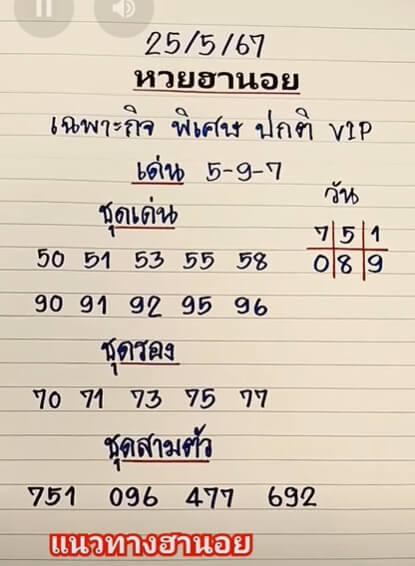 25/5/67
หวยฮานอย
เฉพาะกิจ พิเศษ ปกติ VIP
เด่น 5-9-7
วัน
ชุดเด่น
7 5 1
50 51 53 55 58
0 8 9
90 91 92 95 96
ชุดรอง
70 71 73 75 77
ชุดสามตัว
751 096 477 692
แนวทางฮานอย